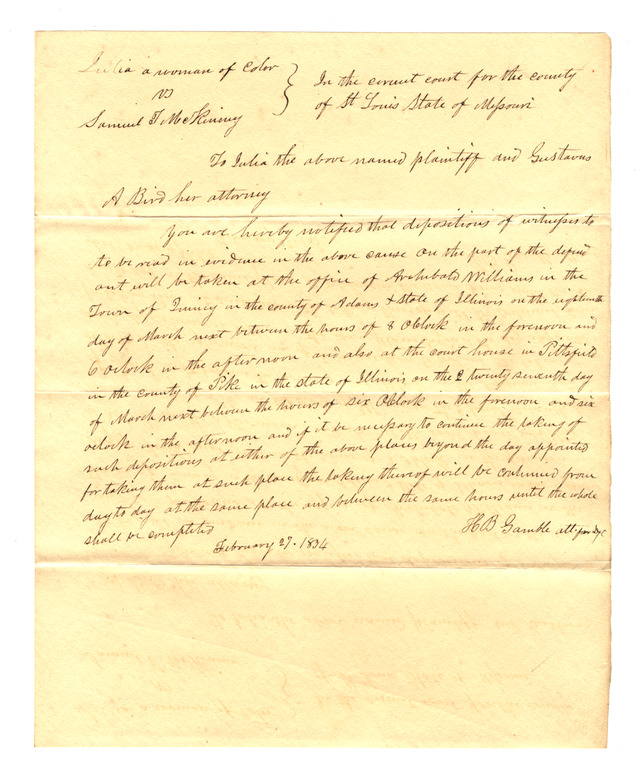 Julia a woman of color
vs
Samuel T McKinney
In the circuit court for the county
of St Louis State of Missouri
To Julia the above named plaintiff and Gustavus
A Bird her attorney
You are hereby notified that depositions of witnesses to
to be read in evidence in the above cause on the part of the defend
ant will be taken at the office of Archibald Williams in the
Town of Quincy in the county of Adams & State of Illinois on the eighteenth
day of March next between the hours of 8 OClock in the forenoon and
6 oclock in the afternoon and also at the court house in Pittsfield
in the county of Pike in the state of Illinois on the twenty seventh day
of March next between the hours of six OClock in the forenoon and six
oclock in the afternoon and if it be necessary to continue the taking of
such depositions at either of the above places beyond the day appointed
for taking them at such place the taking thereof will be continued from
day to day at the same place and between the same hours until the whole
shall be completed
H B Gamble atty for
February 27. 1834